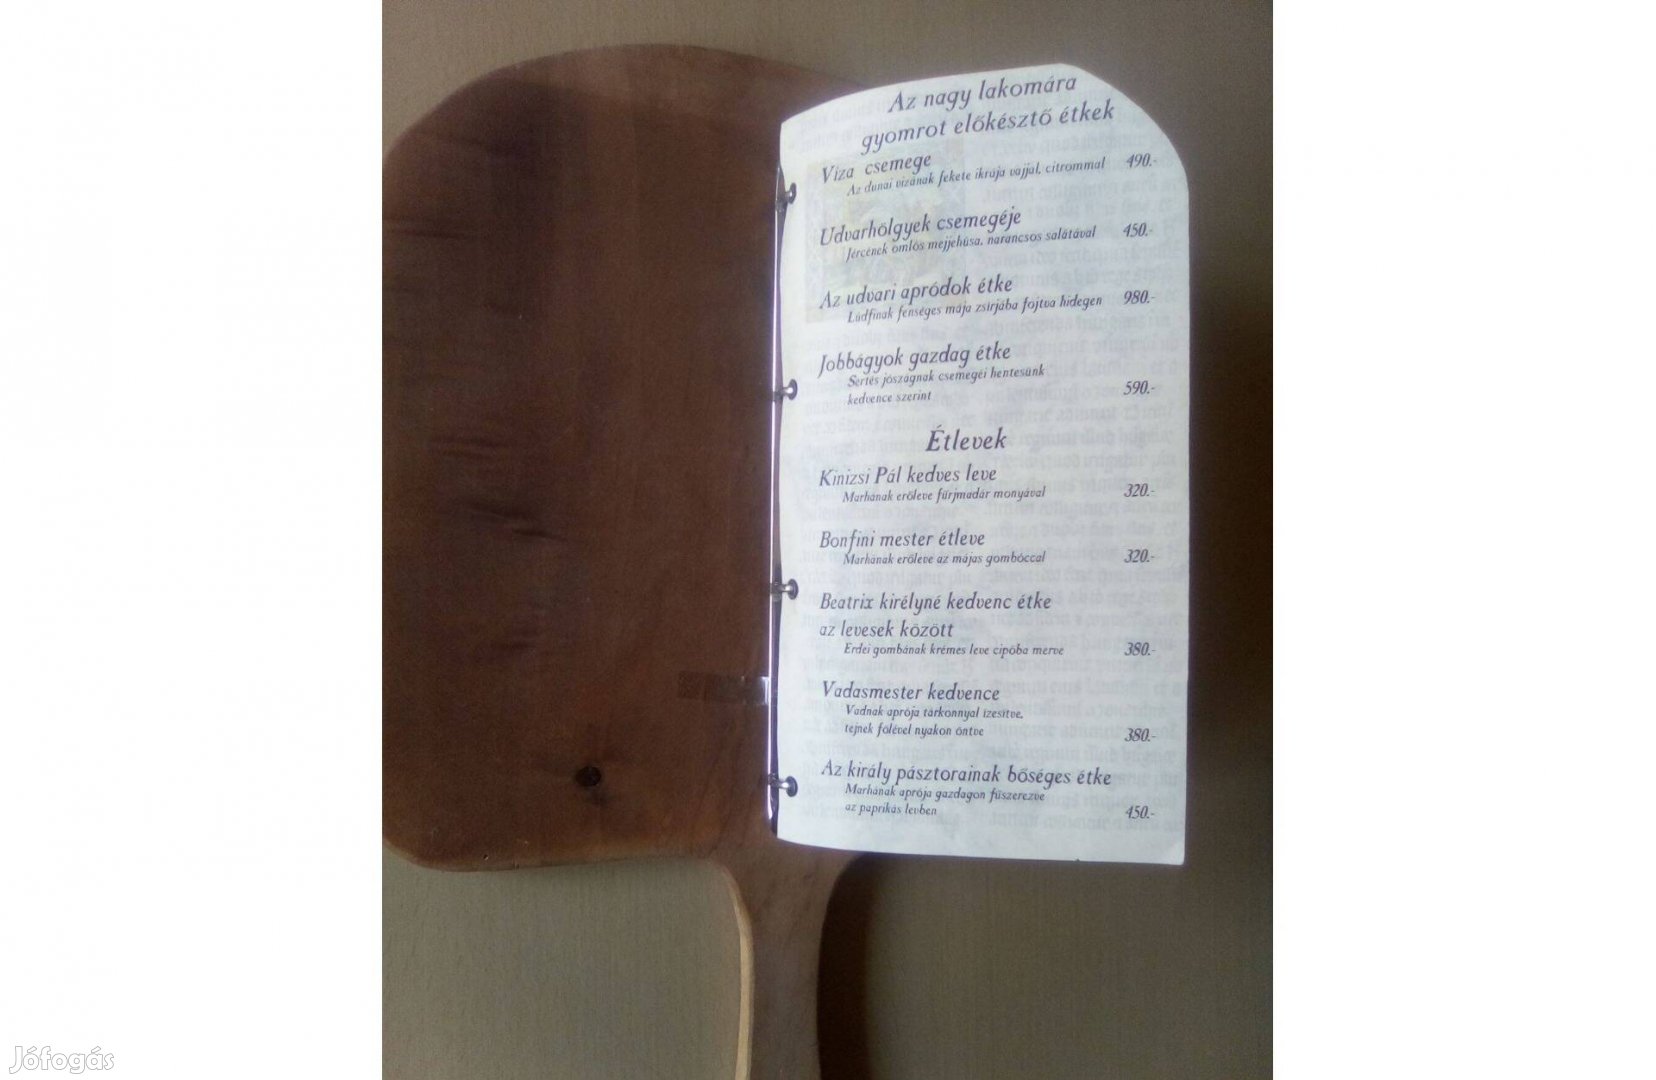 Az nagy lakomára
gyomrot előkésztő étkek
Viza csemege
Az dunai vizának fekete ikrája vajjal, citrommal 490.-
Udvarhölgyek csemegéje
Jércének omlós mejjehúsa, narancsos salátával 450.-
Az udvari apródok étke
Lúdfinak fenséges mája zsírjába fojtva hidegen 980.-
Jobbágyok gazdag étke
Sertés jószágnak csemegéi hentesünk
kedvence szerint 590.-
Étlevek
Kinizsi Pál kedves leve
Marhának erőleve fürjmadár monyával 320.-
Bonfini mester étleve
Marhának erőleve az májas gombóccal 320.-
Beatrix királyné kedvenc étke
az levesek között
Erdei gombának krémes leve cipóba merve 380.-
Vadasmester kedvence
Vadnak aprója tárkonnyal ízesítve,
tejnek fölével nyakon öntve 380.-
Az király pásztorainak bőséges étke
Marhának aprója gazdagon fűszerezve
az paprikás levben 450.-
Jófogás